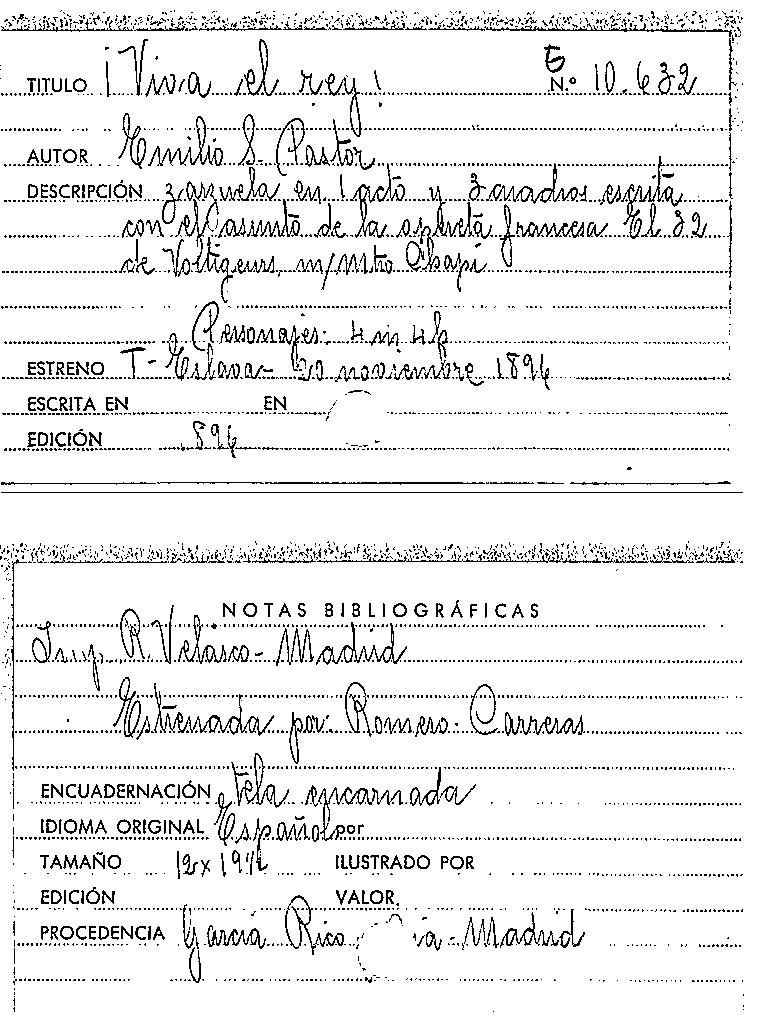 TITULO ¡Viva el rey!
N.º 10.632
AUTOR Emilio S. Pastor
DESCRIPCIÓN zarzuela en 1 acto y 3 cuadros escrita
con el asunto de la opereta francesa El 32
de Voltigeurs, m/Mtro Chapí
Personajes: 4 m 4 h
ESTRENO T- Eslava- 20 noviembre 1896
ESCRITA EN EN
EDICIÓN 896
NOTAS BIBLIOGRÁFICAS
Imp. R. Velasco- Madrid
Estrenada por: Romero- Carreras
ENCUADERNACIÓN tela encarnada
IDIOMA ORIGINAL Español por
TAMAÑO 12 x 19 ILUSTRADO POR
EDICIÓN VALOR.
PROCEDENCIA García Rico ía- Madrid